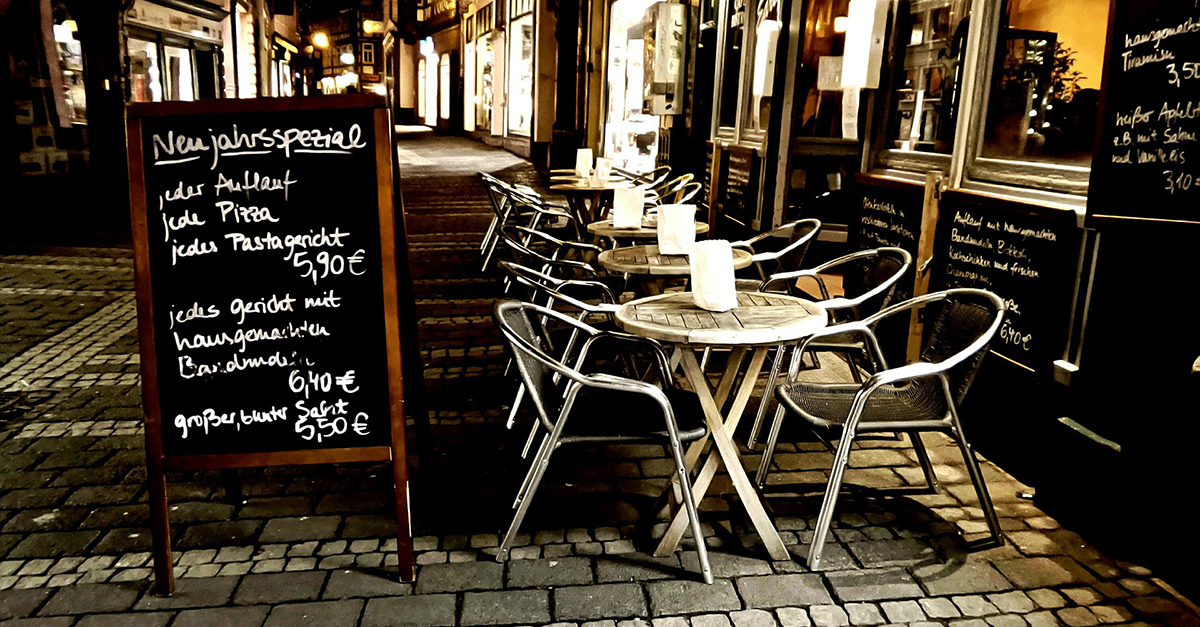 Neujahrsspezial
jeder Auflauf
jede Pizza
jedes Pastagericht
5,90€
jedes Gericht mit
hausgemachten
Bandnudeln
6,40 €
großer, bunter Salat
5,50 €
Auflauf mit hausgemachten
Bandnudeln, Brokkoli,
Kochschinken und frischen
Champignons
6,40€
hausgemachtes
Tiramisu
3,50
heißer Apfel
z.B. mit Sahne
und Vanilleeis
3,10